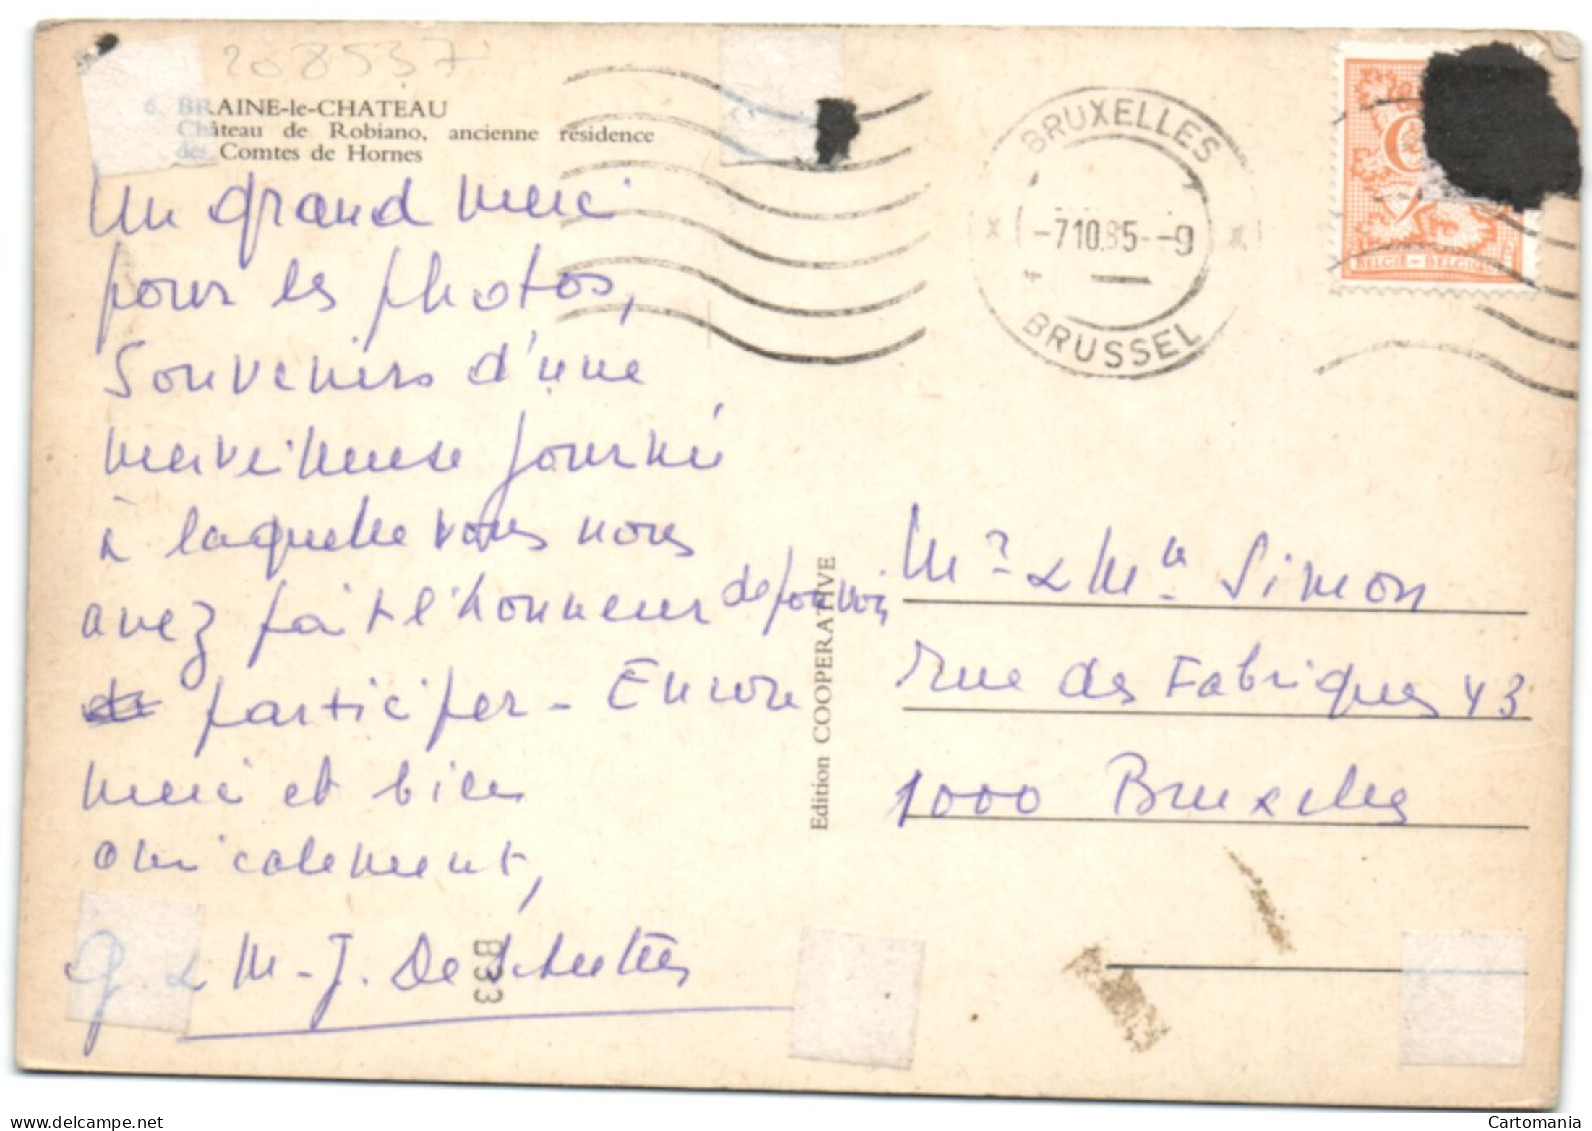 208537
6. BRAINE-le-CHATEAU
Château de Robiano, ancienne résidence
des Comtes de Hornes
Un grand merci
pour les photos,
Souvenirs d'une
merveilleuse journée
à laquelle vous nous
avez fait l'honneur de pouvoir
participer - Encore
merci et bien
amicalement,
G. & M-J. De Schutter
B33
Edition COOPERATIVE
BRUXELLES
-7.10.85--9
BRUSSEL
BELGIE - BELGIQUE
Mr & Me Simon
rue des Fabriques 43
1000 Bruxelles
www.delcampe.net
Cartomania